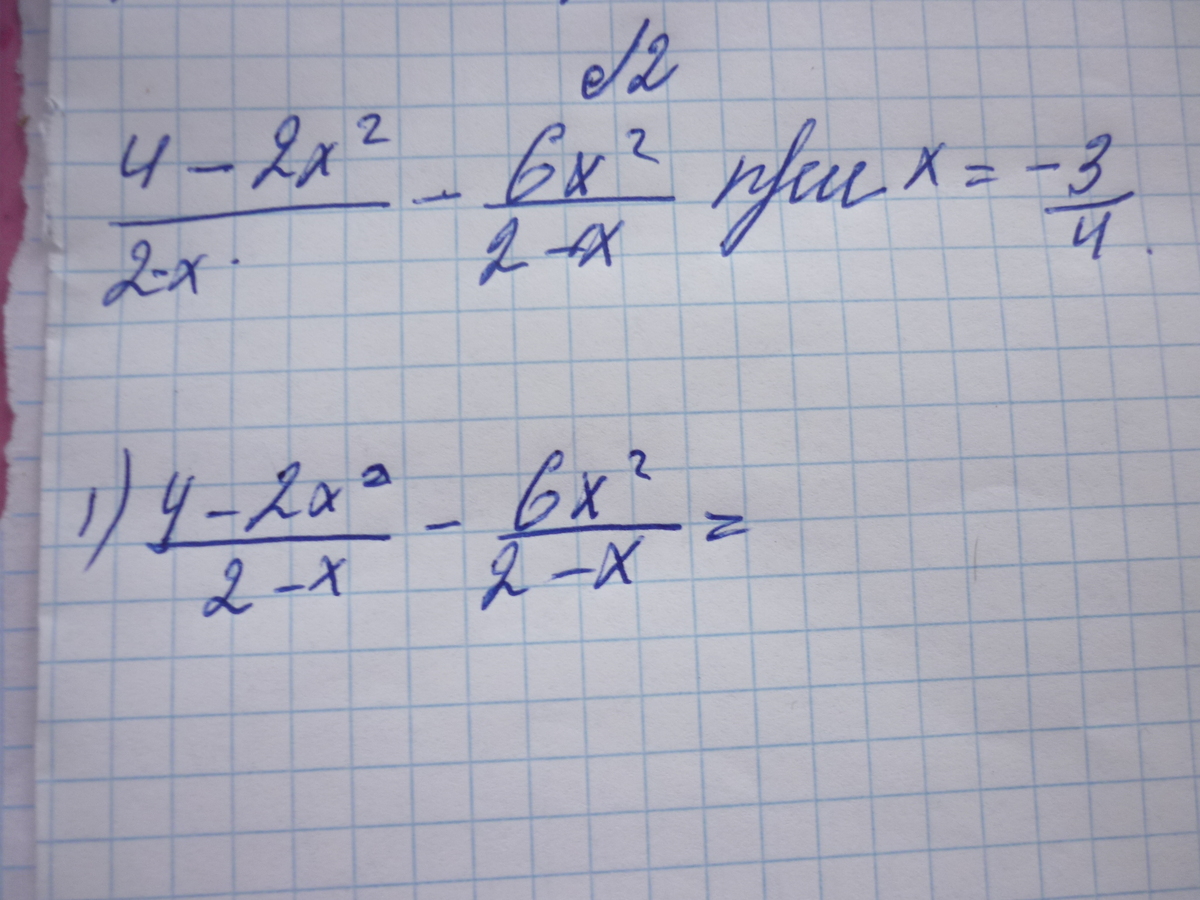 №2
(4 - 2x²)/(2-x) - (6x²)/(2-x) при x = -3/4.
1) (4 - 2x²)/(2-x) - (6x²)/(2-x) =